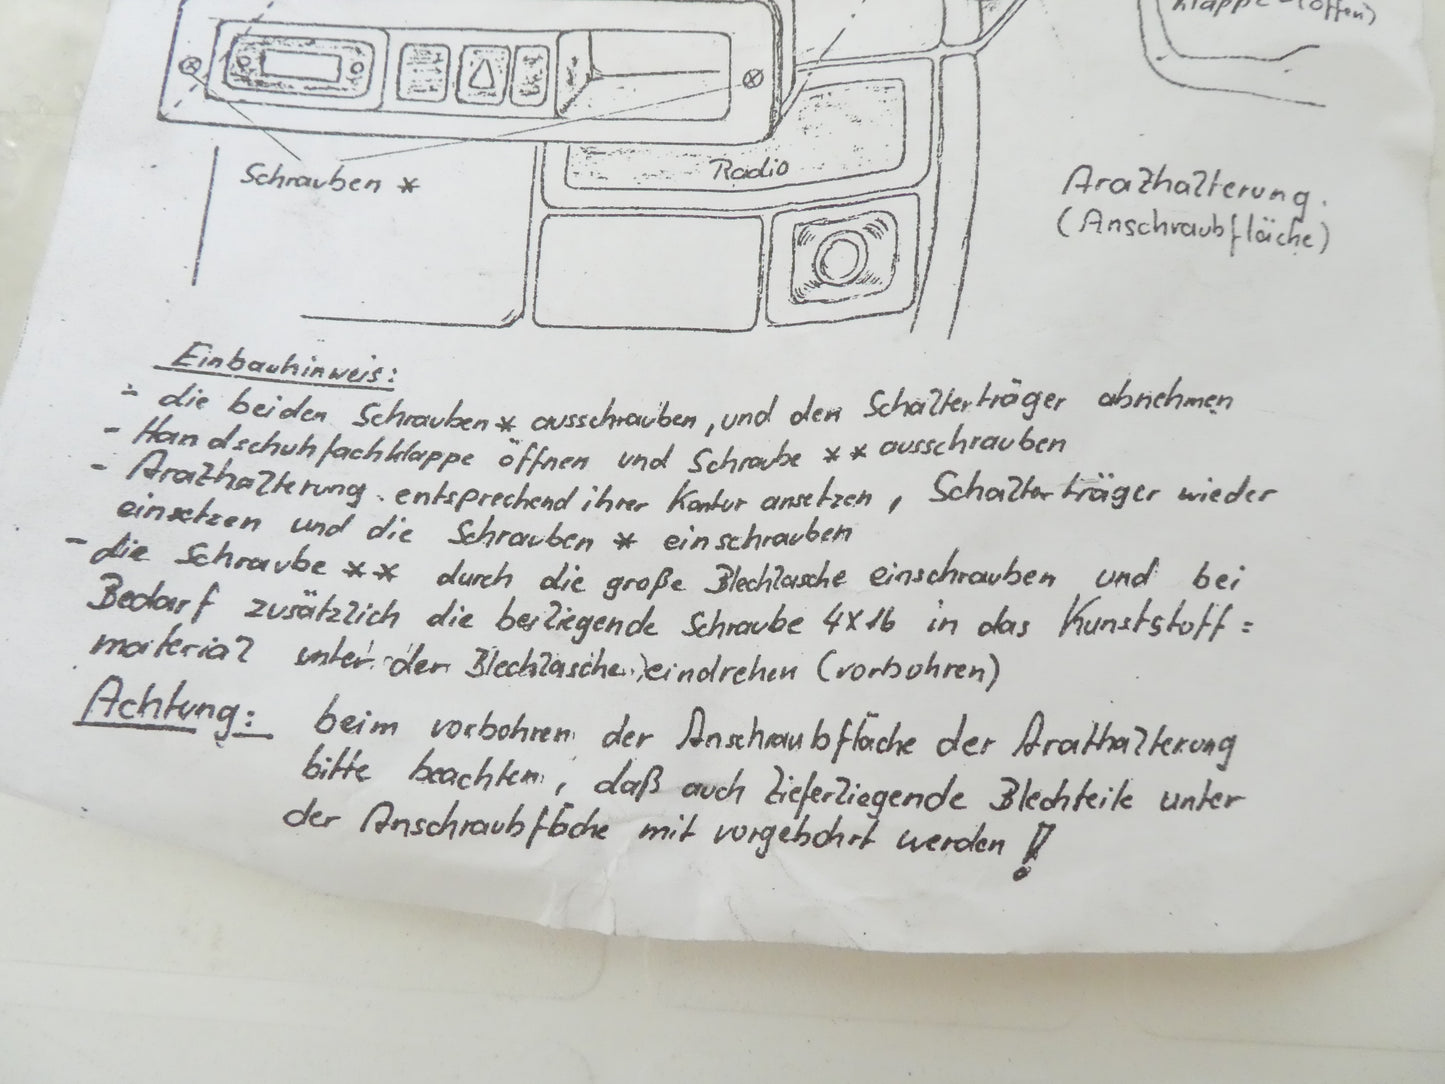 Klappe (offen)
Schrauben *
Radio
Arathalterung.
(Anschraubfläche)
Einbauhinweis:
- die beiden Schrauben * ausschrauben, und den Schalterträger abnehmen
- Handschuhfachklappe öffnen und Schraube ** ausschrauben
- Arathalterung entsprechend ihrer Kontur ansetzen, Schalterträger wieder
einsetzen und die Schrauben * einschrauben
- die Schraube ** durch die große Blechlasche einschrauben und bei
Bedarf zusätzlich die beiliegende Schraube 4x16 in das Kunststoff=
material unter der Blechlasche eindrehen (vorbohren)
Achtung: beim vorbohren der Anschraubfläche der Arathalterung
bitte beachten, daß auch tieferliegende Blechteile unter
der Anschraubfläche mit vorgebohrt werden!